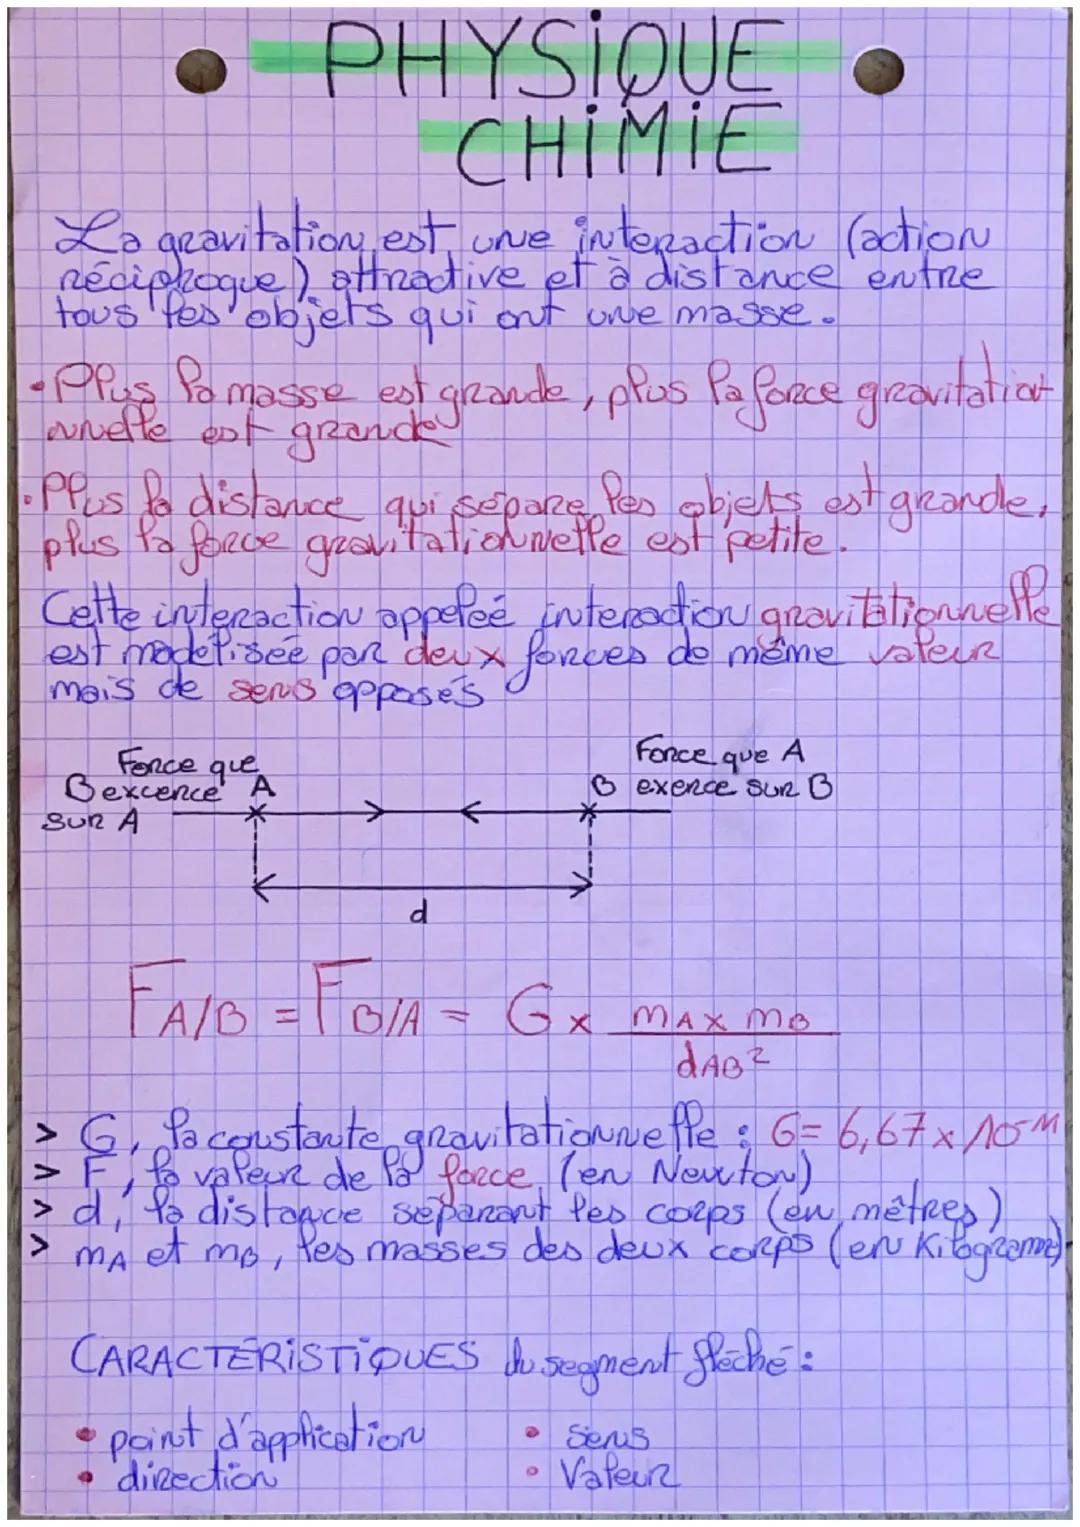 PHYSIQUE
CHIMIE
La gravitation est une interaction (action
réciproque) attractive et à distance entre
tous les objets qui ont une masse.
• Plus la masse est grande, plus la force gravitation
nnelle est grande
• Plus la distance qui sépare les objets est grande,
plus la force gravitationnelle est petite.
Cette interaction appeleé interaction gravitationnelle
est modélisée par deux forces de même valeur
mais de sens opposés
Force que
B excerce A
sur A
Force que A
B exerce sur B
d
FA/B = FB/A = G x mA x mB
dAB²
> G, la constante gravitationnelle : G = 6,67 x 10-11
> F, la valeur de la force (en Newton)
> d, la distance séparant les corps (en mètres)
> mA et mB, les masses des deux corps (en Kilogramme)
CARACTÉRISTIQUES du segment fléché :
• point d'application
• direction
• Sens
• Valeur